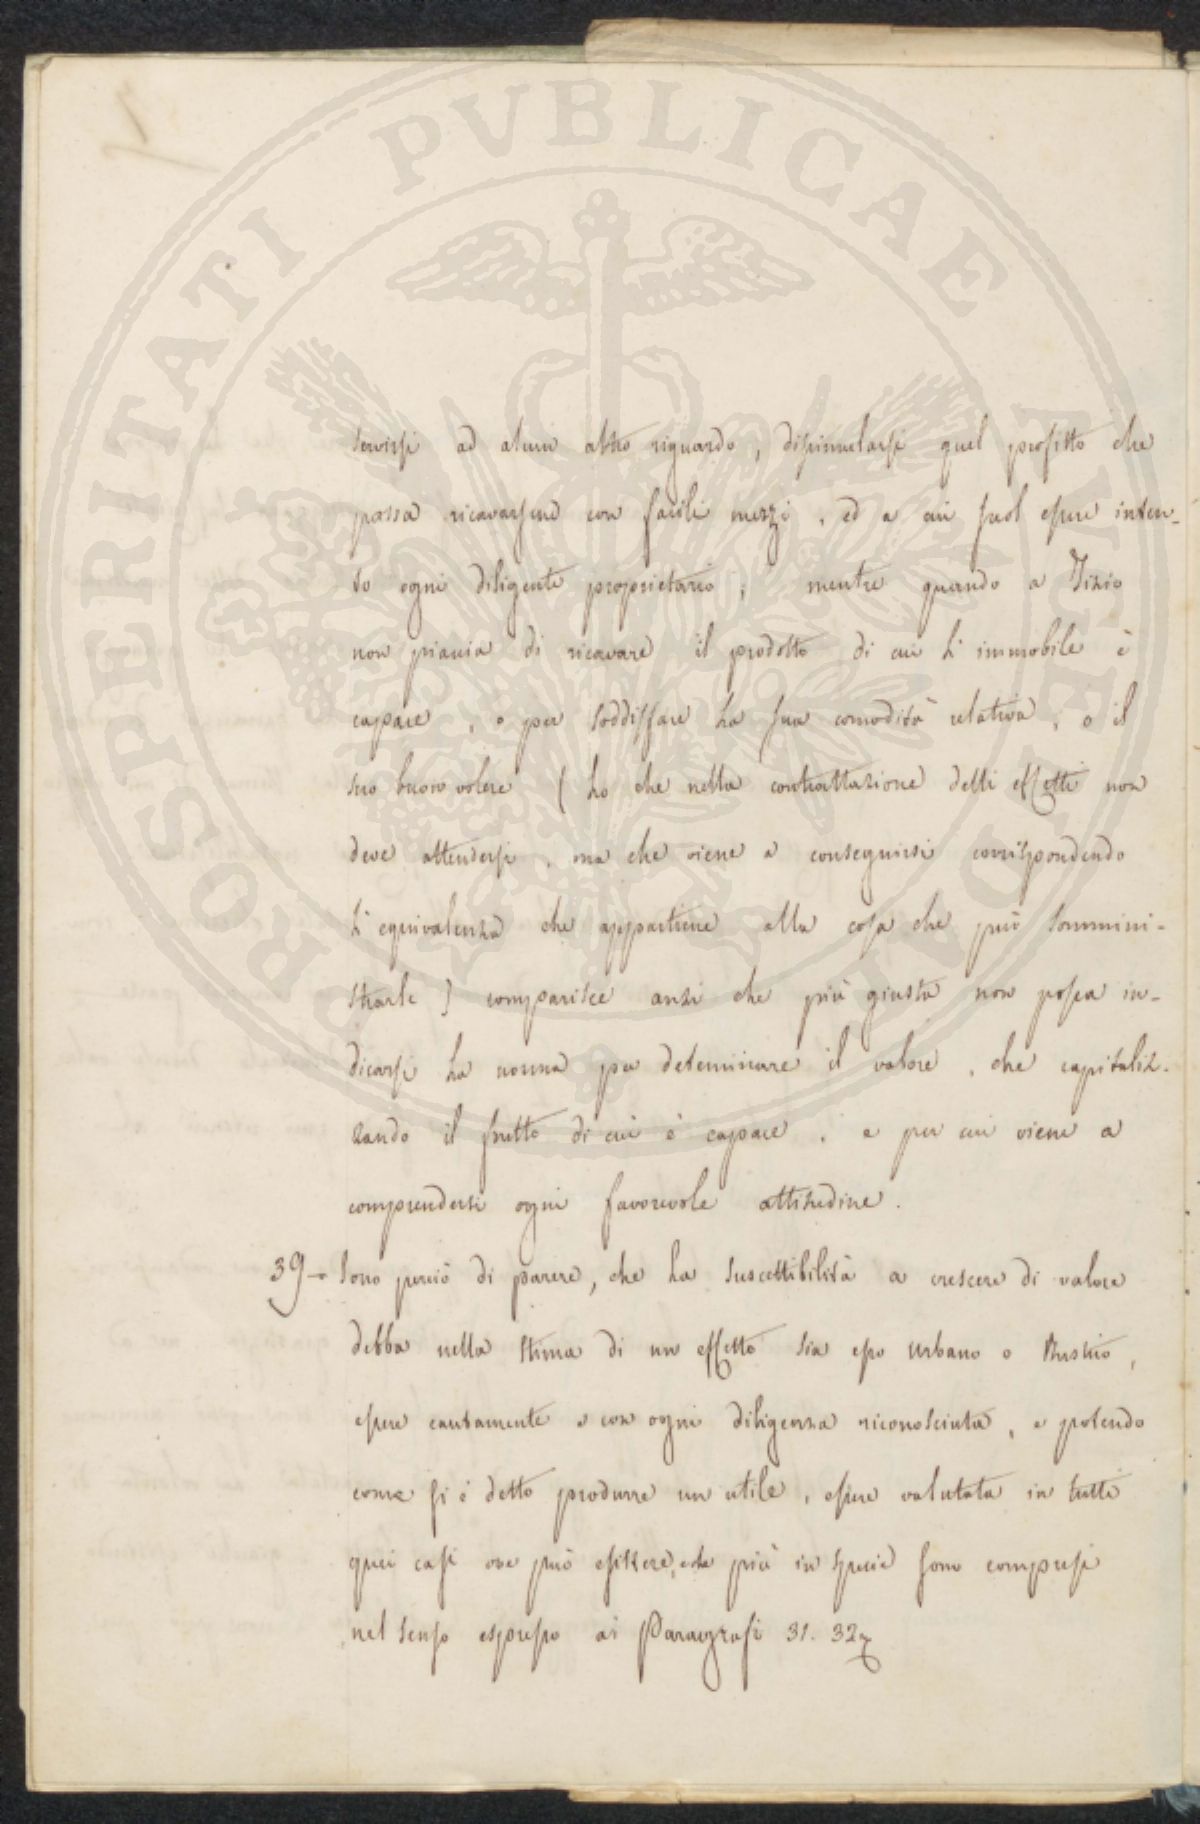 PROSPERITATI PVBLICAE AVGENDAE
servirsi ad alcun altro riguardo, dissimularsi quel profitto che
possa ricavarsene con facili mezzi, ed a cui suol essere inten-
to ogni diligente proprietario; mentre quando a Tizio
non piaccia di ricavare il prodotto di cui l'immobile è
capace, o per soddisfare la sua comodità relativa, o il
suo buon volere (lo che nella contrattazione delli effetti non
deve attendersi, ma che viene a conseguirsi corrispondendo
l'equivalenza che appartiene alla cosa che può sommini-
strarle) comparisce anzi che più giusta non possa in-
dicarsi la norma per determinare il valore, che capitaliz-
zando il frutto di cui è capace, e per cui viene a
comprendersi ogni favorevole attitudine.
39 - Sono perciò di parere, che la suscettibilità a crescere di valore
debba nella stima di un effetto sia esso Urbano o Rustico,
essere cautamente e con ogni diligenza riconosciuta, e potendo
come si è detto produrre un utile, essere valutata in tutti
quei casi ove può esistere, e che più in specie sono compresi
nel senso espresso ai Paragrafi 31. 32